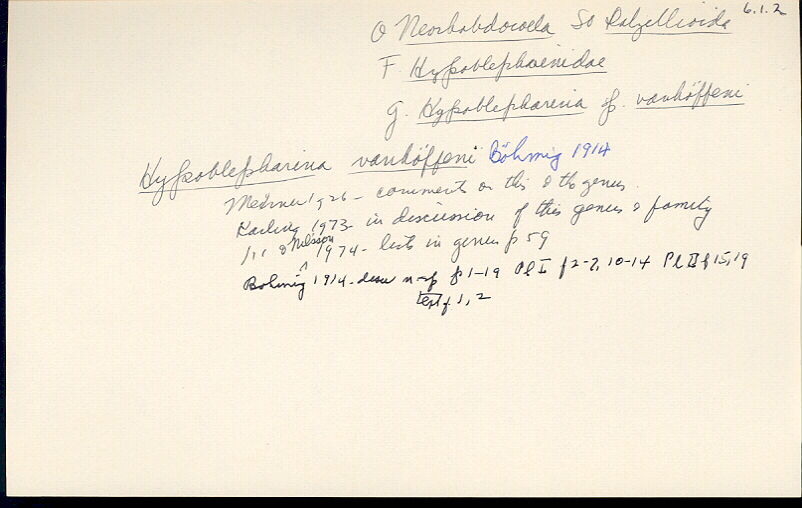 6.1.2
O Neorhabdocoela So Dalyellioida
F. Hypoblepharinidae
G. Hypoblepharina sp. vanhöffeni
Hypoblepharina vanhöffeni Böhmig 1914
Meixner 1926 - comments on this & the genus
Karling 1973 - in discussion of this genus & family
" & Nilsson 1974 - lists in genus p 59
Böhmig 1914 - desc n-sp p 1-19 Pl I f 2-7, 10-14 Pl II f 15, 19
Text f 1, 2